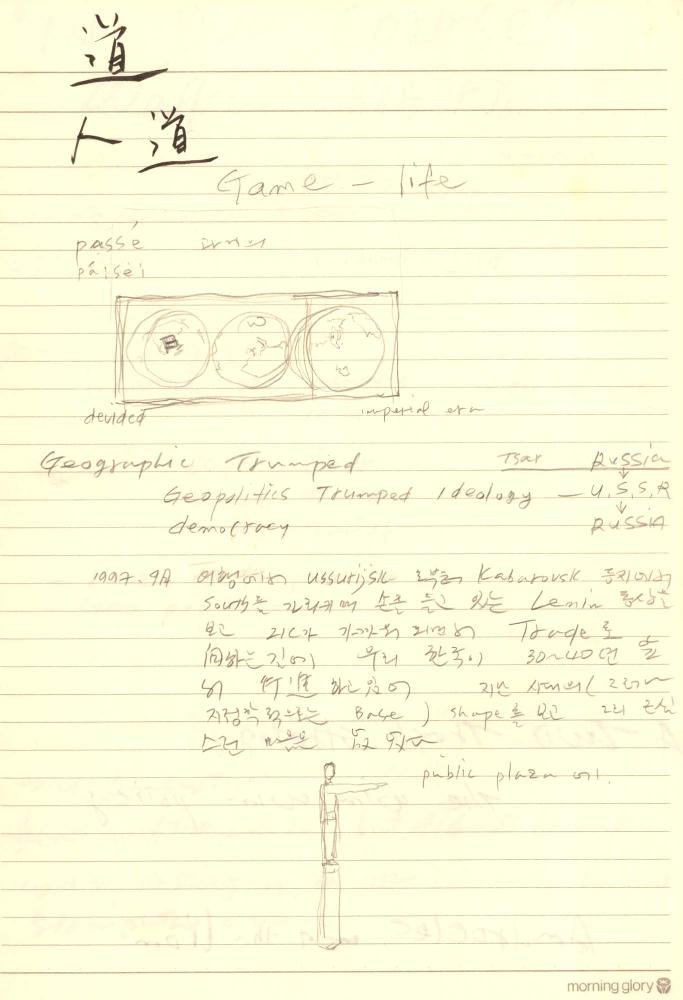 道
人道
Game - life
passé 과거의
devided
imperial era
Geographic Trumped
Tsar Russia
Geopolitics Trumped Ideology — U.S.S.R
democracy RUSSIA
1997. 9月 여행에서 ussurijsk 로부터 Kabarovsk 등지에서
South를 가리키며 손을 들고 있는 Lenin 동상을
보고 21C가 가까워 지면서 Trade로
向하는 길에 우리 한국이 30~40년 앞
서 行進 하고 있어 지난 시대의 (그러나
지정학적으로는 Base) shape를 보고 그리
마음은 없었다
public plaza에.
morning glory